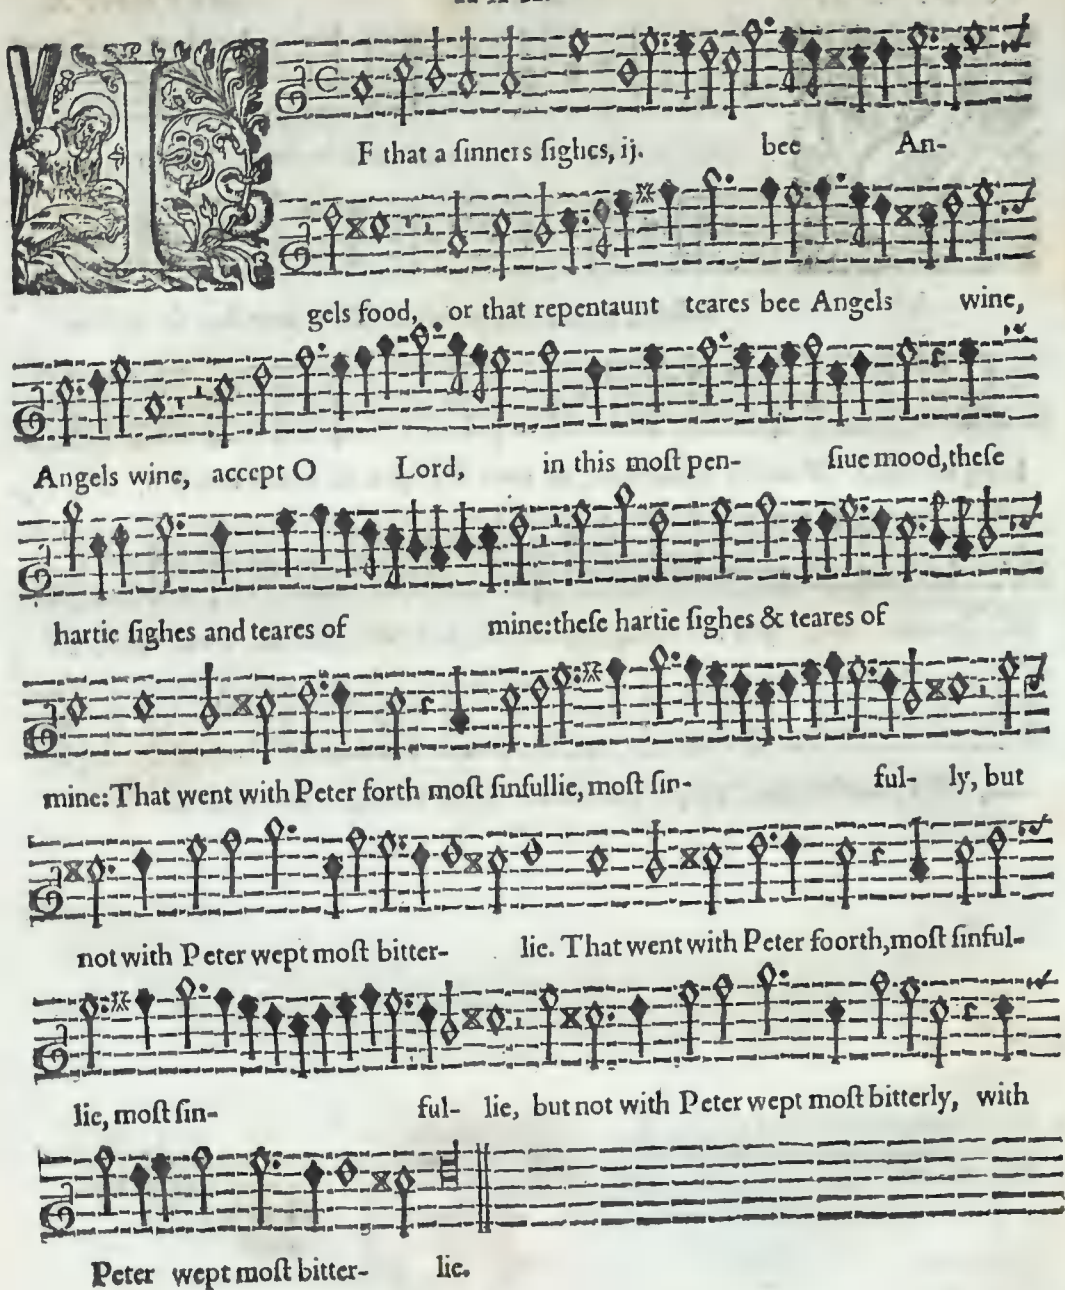 IF that a ſinners ſighes, ij. bee An-
gels food, or that repentaunt teares bee Angels wine,
Angels wine, accept O Lord, in this moſt pen- ſiue mood, theſe
hartie ſighes and teares of mine: theſe hartie ſighes & teares of
mine: That went with Peter forth moſt ſinfullie, moſt ſin- ful- ly, but
not with Peter wept moſt bitter- lie. That went with Peter foorth, moſt ſinful-
lie, moſt ſin- ful- lie, but not with Peter wept moſt bitterly, with
Peter wept moſt bitter- lie.